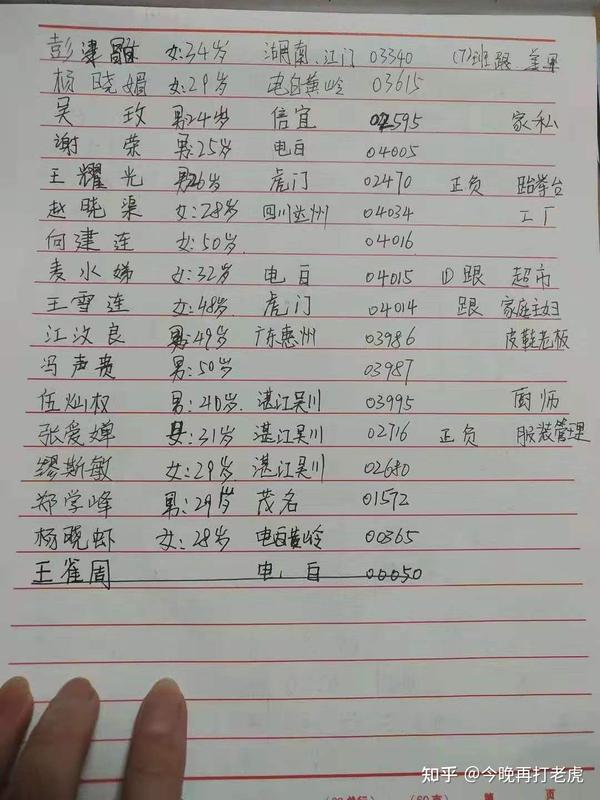 彭建 女:34岁 湖南、江门 03340 (7)班跟 美甲
杨晓媚 女:29岁 电白黄岭 03615
吴玫 男24岁 信宜 02595 家私
谢荣 男:25岁 电白 04005
王耀光 男26岁 虎门 02470 正负 跆拳台
赵晓渠 女:28岁 四川达州 04034 工厂
何建连 女:50岁 04016
麦水娣 女:32岁 电白 04015 ①跟 超市
王雪连 女:48岁 虎门 04014 跟 家庭主妇
江汝良 男:49岁 广东惠州 03986 皮鞋老板
冯声贵 男:50岁 03987
伍灿权 男:40岁. 湛江吴川 03995 厨师
张爱婵 女:31岁 湛江吴川 02716 正负 服装管理
缪斯敏 女:29岁. 湛江吴川 02680
郑学峰 男:29岁 茂名 01572
杨晓虾 女:28岁 电白黄岭 00365
王雀周 电白 00050
知乎 @今晚再打老虎
第 页